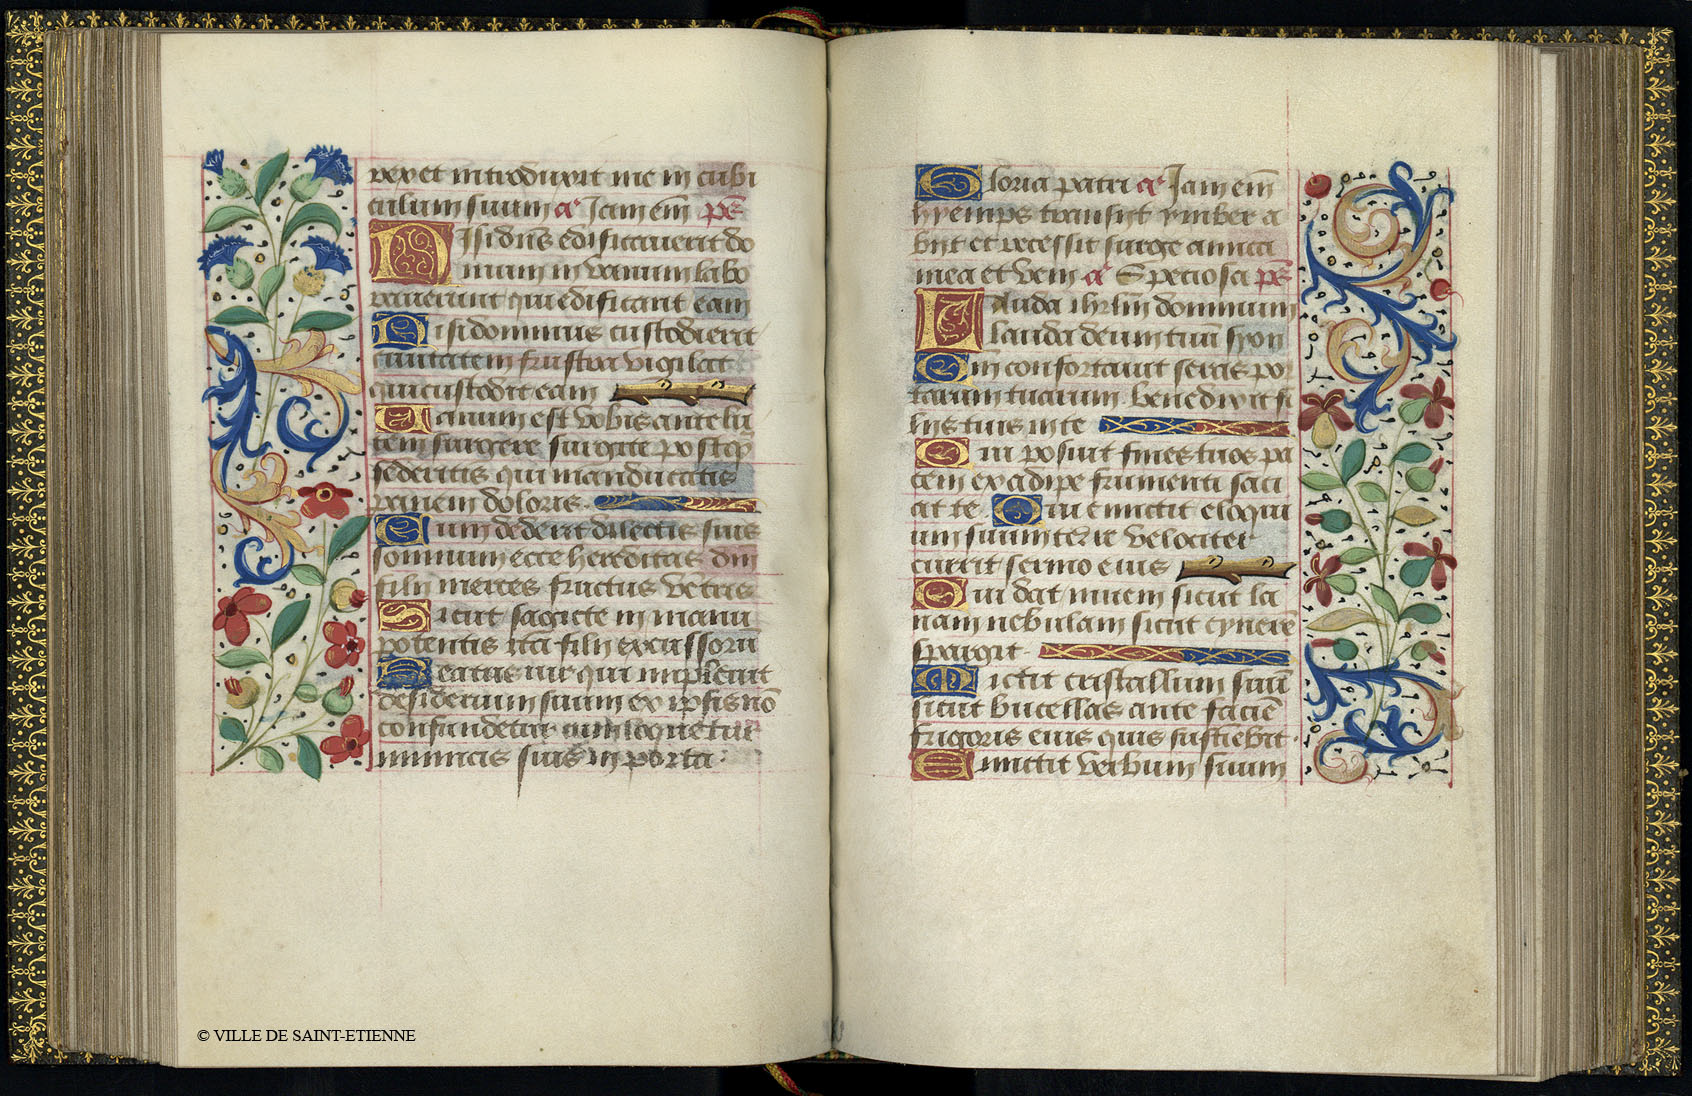 rex et introduxit me in cubi
culum suum a͞ Jam em̄ ps̄
Nisi dn̄s edificauerit do
mum in vanum labo
rauerunt qui edificant eam
Nisi dominus custodierit
ciuitatem frustra vigilat
qui custodit eam
Vanum est vobis ante lu
cem surgere surgite postq̄
sederitis qui manducatis
panem doloris.
Cum dederit dilectis suis
somnum ecce hereditas dn̄i
filij merces fructus ventris
Sicut sagicte in manu
potentis ita filij excussoru
Beatus uir qui impleuit
desiderium suum ex ipsis nō
confundetur cum loquetur
inimicis suis in porta.
Gloria patri a͞ Jam em̄
hyemps transijt ymber a
bijt et recessit surge amica
mea et veni a͞ Speciosa ps̄
Lauda ihrl̄m dominum
lauda deum tuū syon
Qm̄ confortauit seras por
tarum tuarum benedixit fi
lijs tuis in te
Qui posuit fines tuos pa
cem ex adipe frumenti saci
at te Qui emictit eloqui
um suum terre velociter
currit sermo eius
Qui dat niuem sicut la
nam nebulam sicut cynerē
spargit.
Mictit cristallum suū
sicut bucellas ante faciē
frigoris eius quis sustiebit.
Emictit verbum suum
© VILLE DE SAINT-ETIENNE